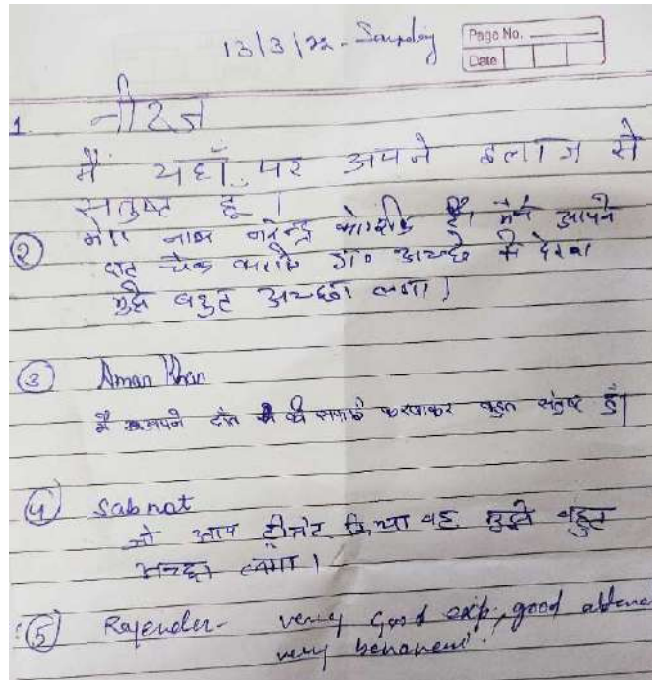 13/3/22 - Sunday
Page No.
Date
1. नीरज
मैं यहाँ पर अपने इलाज से
सतुष्ट हूँ।
2 मेरा नाम नरेन्द्र कौशिक है, मैंने अपने
दात चैक कराये डा० अच्छे से देखा
मुझे बहुत अच्छा लगा।
3 Aman Khan
मैं अपने दाँत की सफाई करवाकर बहुत संतुष्ट हूँ।
4 Sabnat
जो आप ट्रीटमेंट किया वह मुझे बहुत
अच्छा लगा।
5 Rajender- very good exp, good
very